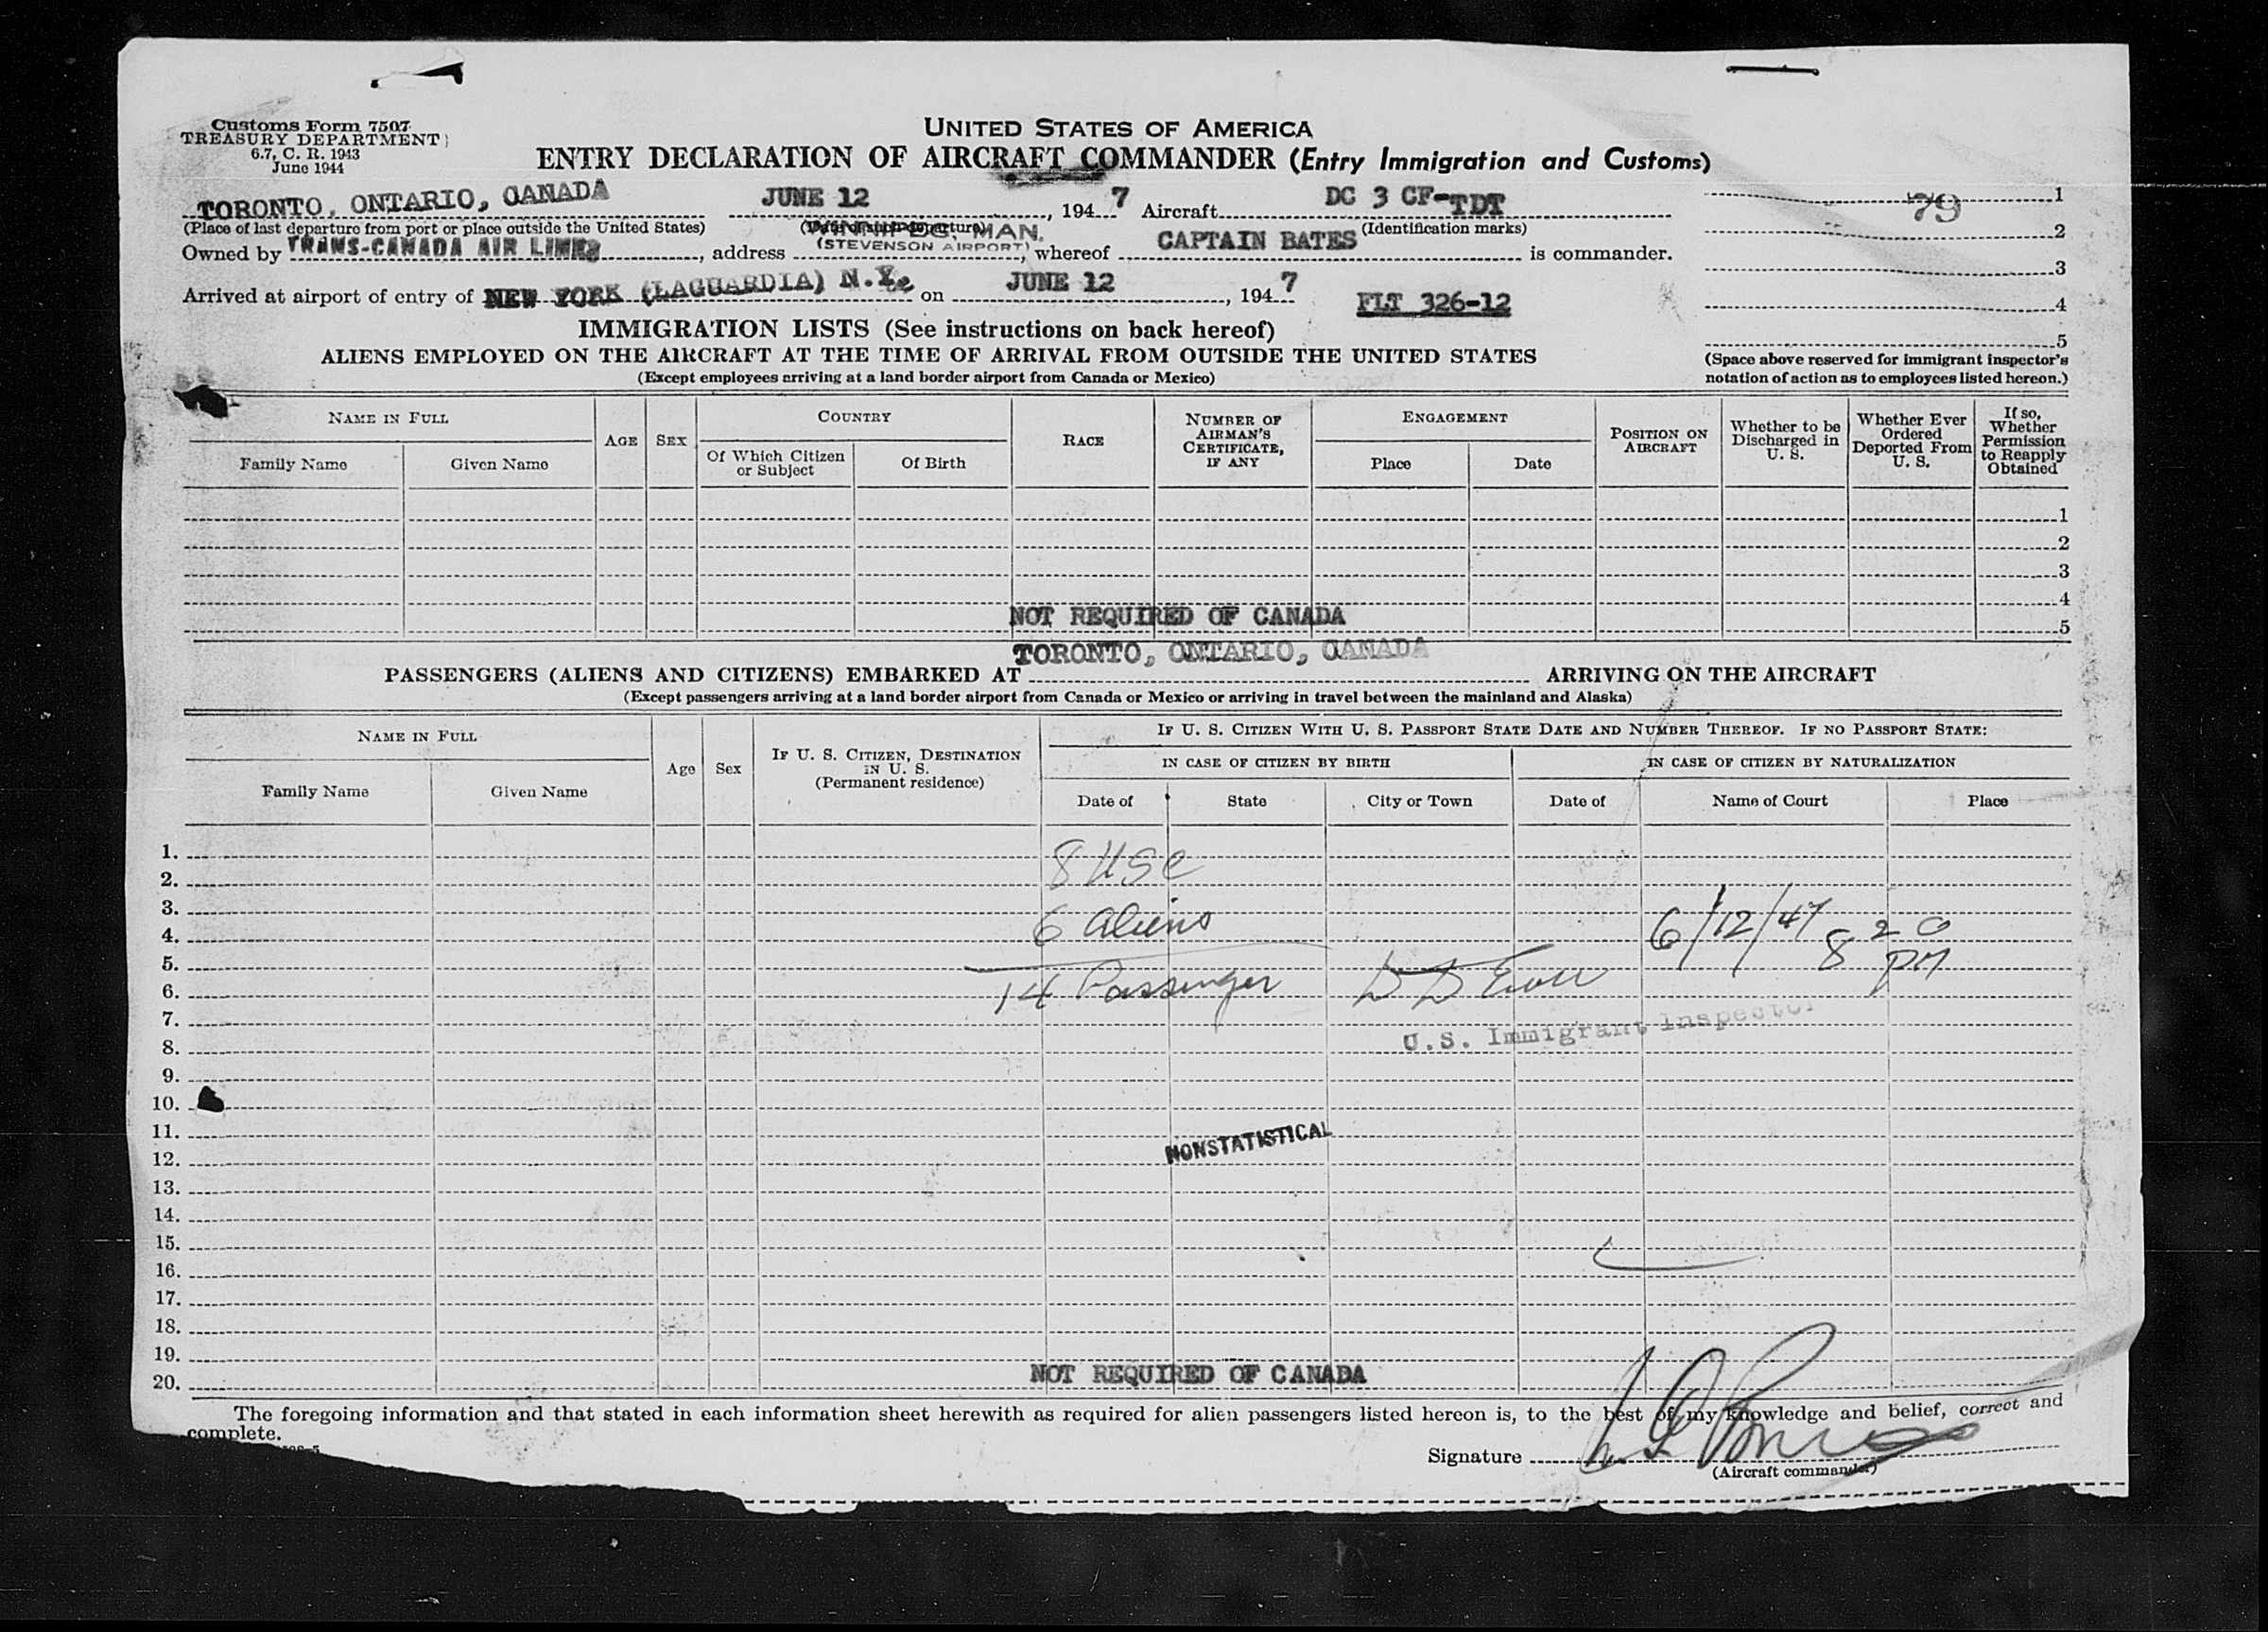 Customs Form 7507
TREASURY DEPARTMENT
6.7, C. R. 1943
June 1944
UNITED STATES OF AMERICA
ENTRY DECLARATION OF AIRCRAFT COMMANDER (Entry Immigration and Customs)
TORONTO, ONTARIO, CANADA JUNE 12, 1947 Aircraft DC 3 CF-TDT
(Place of last departure from port or place outside the United States) (Date of such departure) (Identification marks)
WINNIPEG, MAN.
Owned by TRANS-CANADA AIR LINES, address (STEVENSON AIRPORT), whereof CAPTAIN BATES is commander.
Arrived at airport of entry of NEW YORK (LAGUARDIA) N.Y. on JUNE 12, 1947 FLT 326-12
79
1
2
3
4
5
(Space above reserved for immigrant inspector's
notation of action as to employees listed hereon.)
IMMIGRATION LISTS (See instructions on back hereof)
ALIENS EMPLOYED ON THE AIRCRAFT AT THE TIME OF ARRIVAL FROM OUTSIDE THE UNITED STATES
(Except employees arriving at a land border airport from Canada or Mexico)
NAME IN FULL
Family Name Given Name
AGE
SEX
COUNTRY
Of Which Citizen or Subject Of Birth
RACE
NUMBER OF AIRMAN'S CERTIFICATE, IF ANY
ENGAGEMENT
Place Date
POSITION ON AIRCRAFT
Whether to be Discharged in U. S.
Whether Ever Ordered Deported From U. S.
If so, Whether Permission to Reapply Obtained
1
2
3
4
5
NOT REQUIRED OF CANADA
TORONTO, ONTARIO, CANADA
PASSENGERS (ALIENS AND CITIZENS) EMBARKED AT ARRIVING ON THE AIRCRAFT
(Except passengers arriving at a land border airport from Canada or Mexico or arriving in travel between the mainland and Alaska)
NAME IN FULL
Family Name Given Name
Age
Sex
IF U. S. CITIZEN, DESTINATION IN U. S. (Permanent residence)
IF U. S. CITIZEN WITH U. S. PASSPORT STATE DATE AND NUMBER THEREOF. IF NO PASSPORT STATE:
IN CASE OF CITIZEN BY BIRTH IN CASE OF CITIZEN BY NATURALIZATION
Date of State City or Town Date of Name of Court Place
1.
2. 8 USC
3.
4. 6 Aliens 6/12/47 8 20 PM
5.
6. 14 Passenger
7.
8. U.S. Immigrant Inspector
9.
10.
11.
12. NONSTATISTICAL
13.
14.
15.
16.
17.
18.
19.
20. NOT REQUIRED OF CANADA
The foregoing information and that stated in each information sheet herewith as required for alien passengers listed hereon is, to the best of my knowledge and belief, correct and
complete.
Signature
(Aircraft commander)